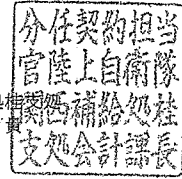 分任契約担当
官陸上自衛隊
関西補給処桂
支処会計課長
桂支処